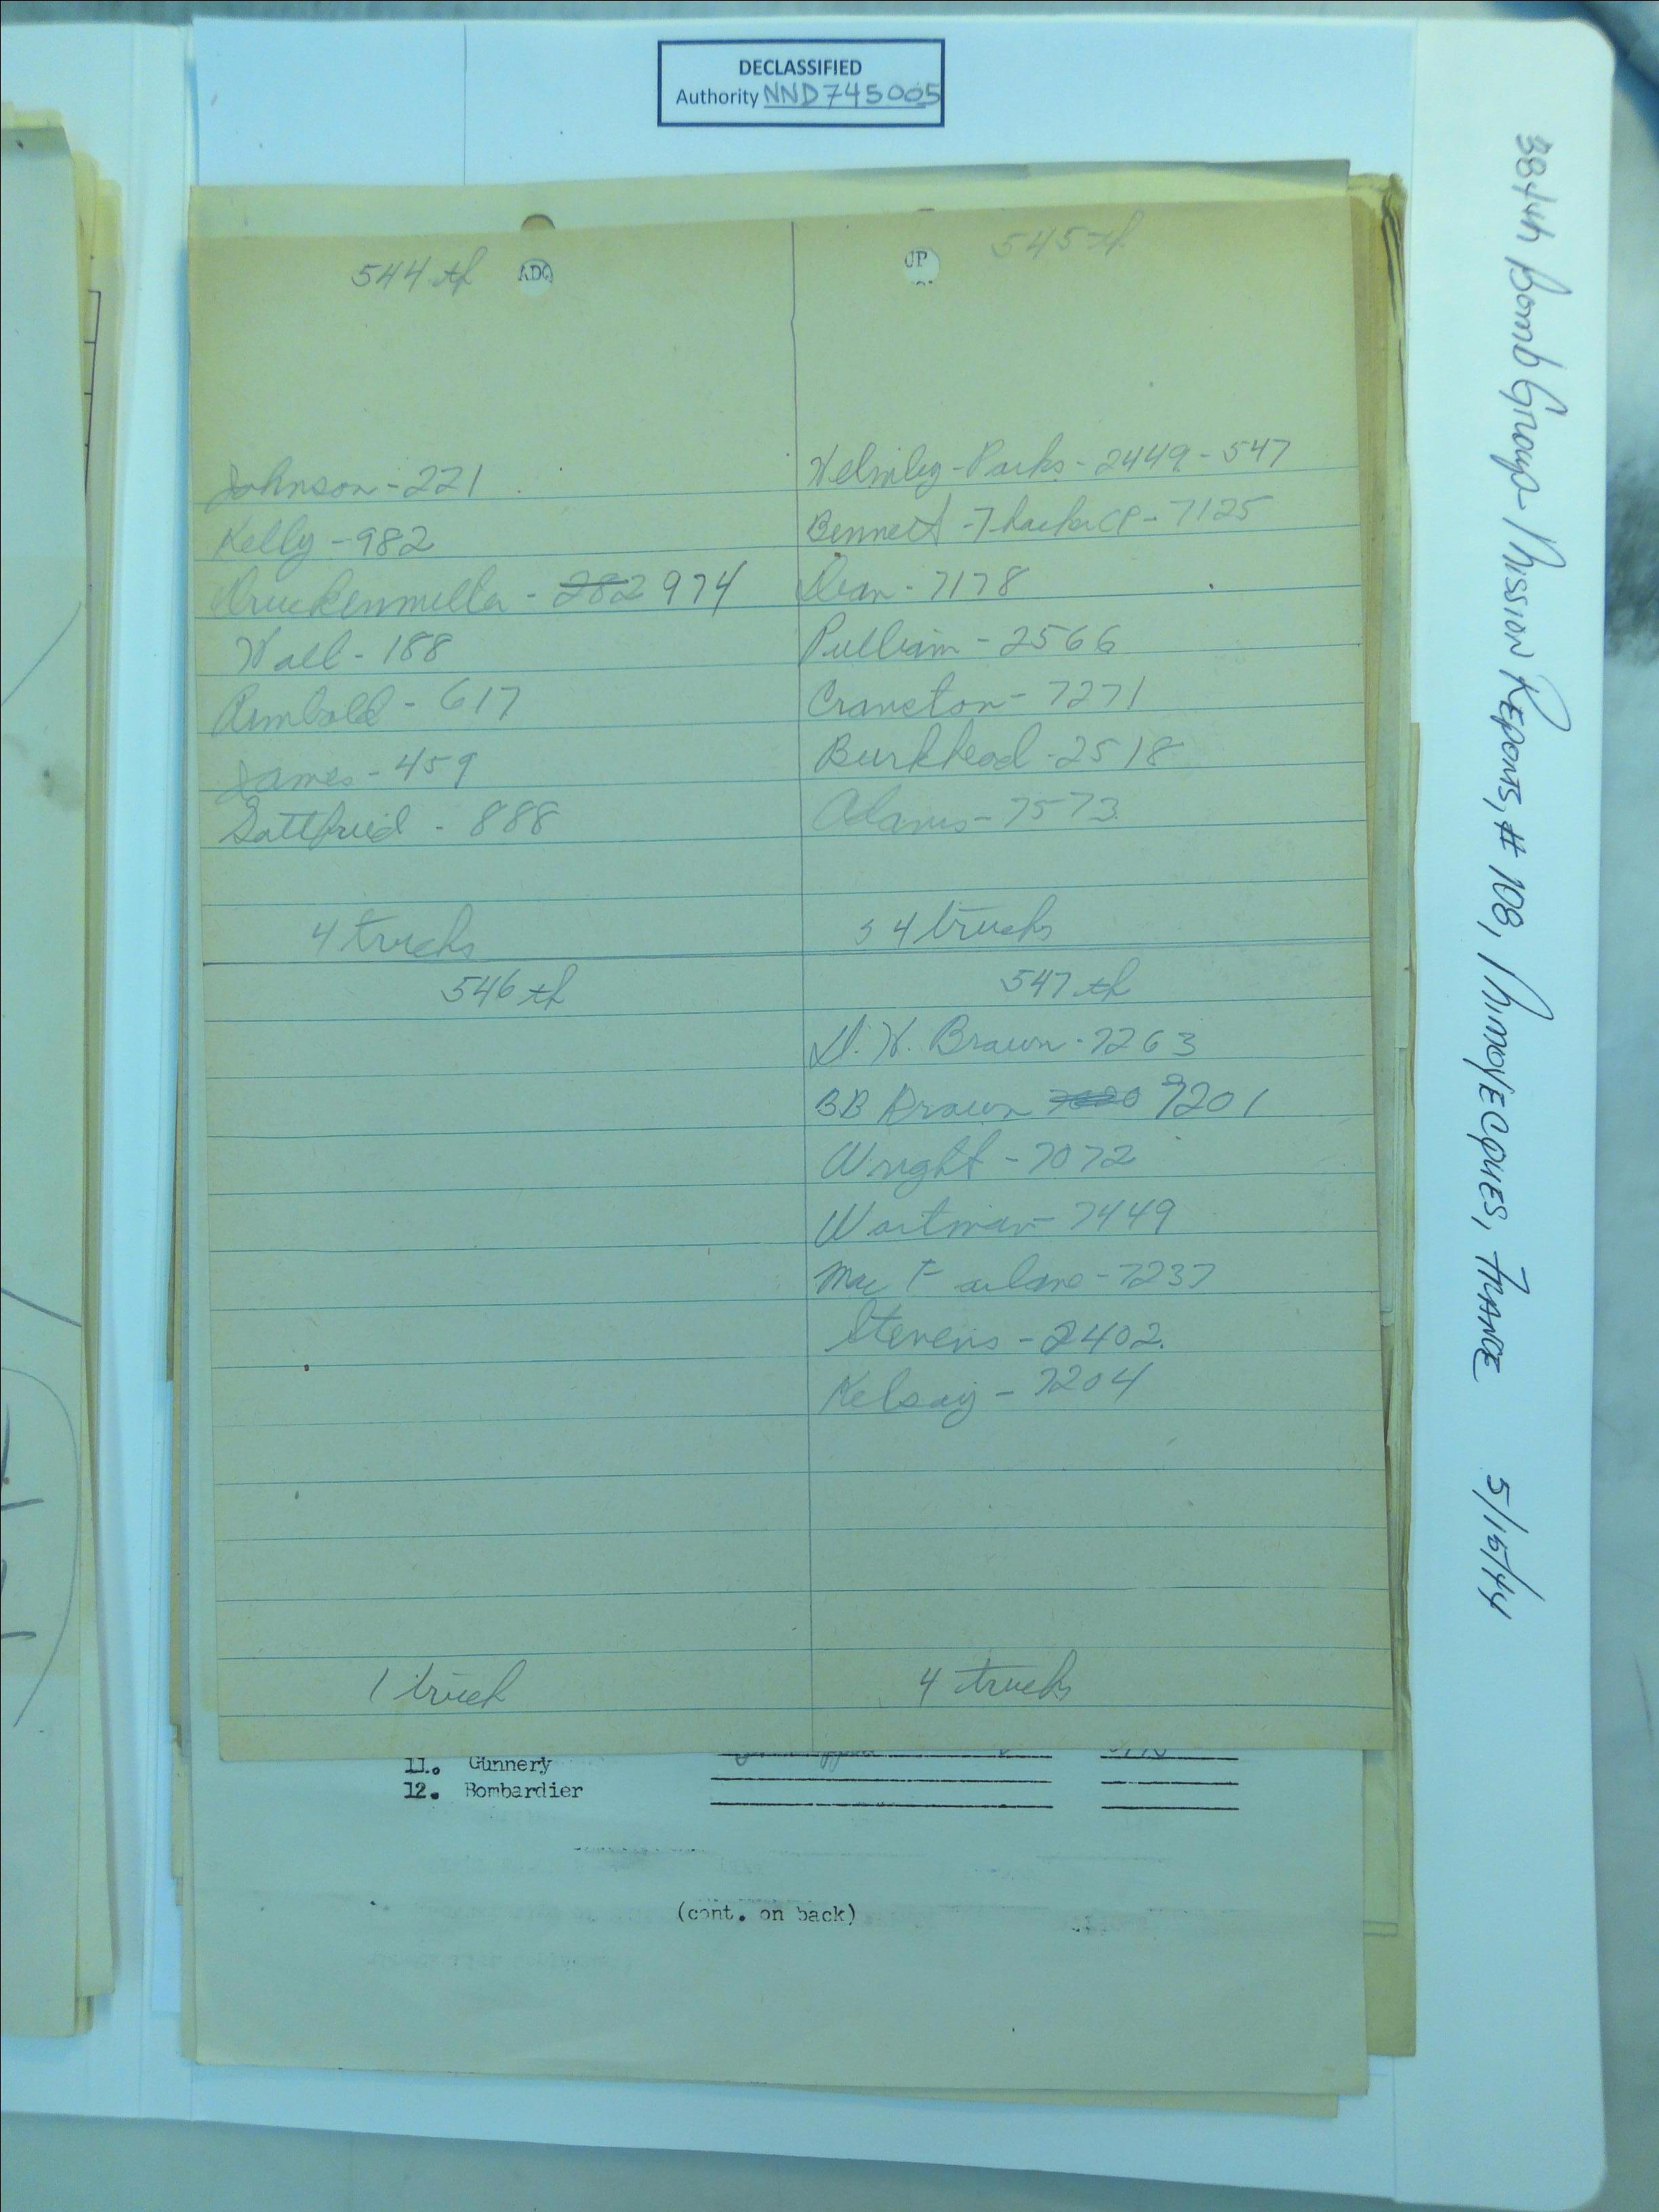 DECLASSIFIED
Authority NND745005
544th
ADQ
Johnson - 221
Kelly - 982
Druckenmiller - 282 974
Wall - 188
Rumbold - 617
James - 459
Gottfried - 888
4 trucks
UP
545th
Parks - 2449 - 547
Bennett - Thacker CP - 7125
Dean - 7178
Pulliam - 2566
Cranston - 7271
Burkhead - 2518
Adams - 7573
4 trucks
546th
1 truck
547th
D. W. Brown - 7263
BB Brown 7201
Wright - 7072
Wortman - 7449
Mac Farlane - 7237
Stevens - 2402.
Kelsay - 7204
4 trucks
11. Gunnery
12. Bombardier
(cont. on back)
384th Bomb Group - Mission Reports, # 108, Mimoyecques, France 5/15/44